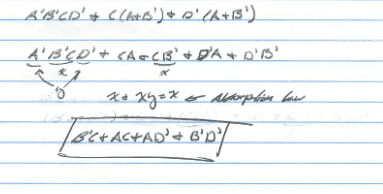 A'B'CD' + C(A+B') + D'(A+B')
A'B'CD' + CA + CB' + D'A + D'B'
x x
y x + xy = x ← absorption law
B'C + AC + AD' + B'D'